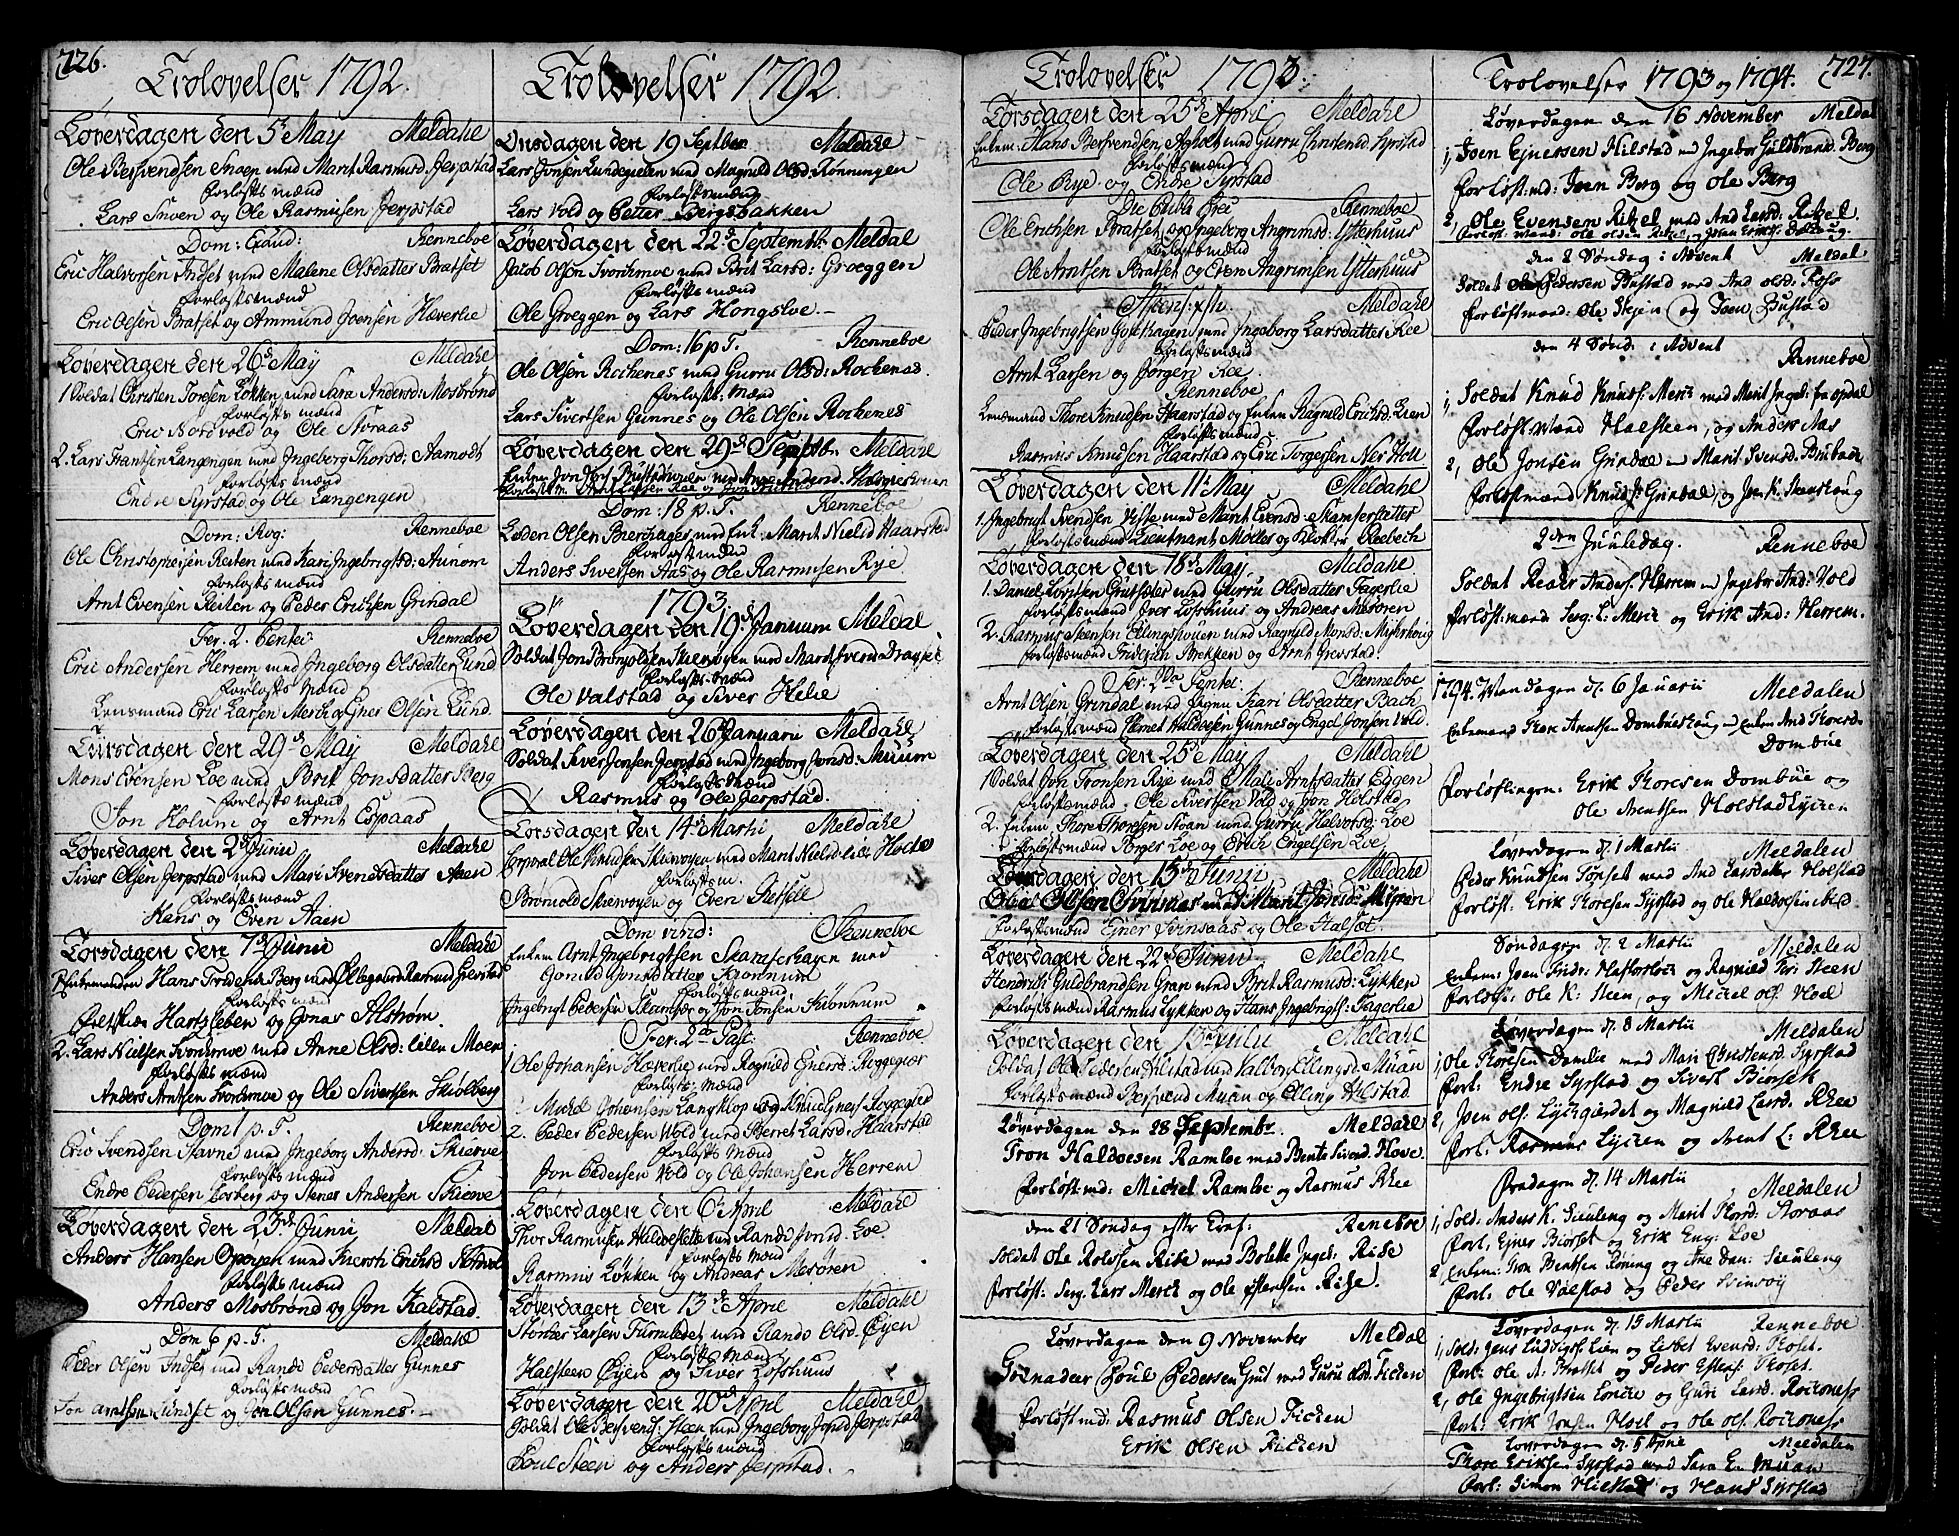 726.
Trolovelser 1792.
Løverdagen den 5te May Meldahl
Ole Bersvendsen Snoen med Marit Rasmusd: Jerpstad
forlofts mænd
Lars Snoen og Ole Rasmusen Jerpstad
Dom: Exaud: Renneboe
Eric Halvorsen Indset med Malene Olsdatter Bratset
forlofts mænd
Eric Olsen Bratset og Ammund Joensen Hæverlie
Løverdagen den 26de May Meldahl
1 Soldat Christen Joresen Løkken med Sara Andersd: Mosbrønd
forlofts mænd
Eric Nordvold og Ole Storaas
2. Lars Frantsen Langengen med Ingeborg Thorsd: Aamodt
forlofts mænd
Endre Syrstad og Ole Langengen
Dom: Rog: Renneboe
Ole Christophersen Reiten med Kari Ingebrigtsd: Aunom
forlofts mænd
Arnt Evensen Reiten og Peder Erichsen Grindal
Fer. 2. Pente: Renneboe
Eric Andersen Herrem med Ingeborg Olsdatter Lund
forlofts mænd
Lensmand Eric Larsen Merch og Ener Olsen Lund.
Tirsdagen den 29de May Meldahl
Mons Evensen Loe med Brit Jonsdatter Berg
forlofts mænd
Jon Holum og Arnt Espaas
Løverdagen den 2de Junii Meldahl
Siver Olsen Jerpstad med Mari Svendsdatter Aaen
forlofts mænd
Hans og Even Aaen
Torsdagen den 7de Junii Meldahl
Hans Friderich Berg med Rasmusd
forlofts mænd
Hartzleben og Jonas Alstrøm.
2. Lars Nielsen Svorkmoe med Anne Olsd: lille Moen
forlofts mænd
Anders Arntsen Svorkmoe og Ole Sivertsen Skiølberg
Dom 1 p. T. Renneboe
Eric Svendsen Stavne med Ingeborg Andersd: Skierve
forlofts mænd
Endre Pedersen Losberg og Stener Andersen Skierve
Løverdagen den 23de Junii Meldal
Anders Hansen Opoyen med Kiersti Ericksd
forlofts mænd
Anders Mosbrønd og Jon Kalstad.
Dom 6 p. T. Meldahl
Peder Olsen Indset med Rande Pedersdatter Gunnes
forlofts mænd
Jon Arntsen Indset og Jon Olsen Gunnes.
Trolovelser 1792.
Onsdagen den 19 Septber Meldahl
Lars Jonsen Lundegielen med Magnild Olsd: Rønningen
forlofts mænd
Lars Vold og Petter Bergsbakken
Løverdagen den 22de Septembr Meldal
Jacob Olsen Svorkmoe med Brit Larsd: Groeggen
forlofts mænd
Ole Groeggen og Lars Hongsloe.
Dom: 16 p T. Renneboe
Ole Olsen Rochenes med Gurru Olsd: Rochenes.
forlofts: mænd
Lars Sivertsen Gunnes og Ole Olsen Rochenes
Løverdagen den 29de Septbr. Meldahl
Dom: 18 p. T. Renneboe
Peder Olsen Bierchager med Enk: Marit Nielsd Haarstad
forlofts mænd
Anders Sivertsen Aas og Ole Rasmusen Rye
1793.
Løverdagen den 19de Januarii Meldal
Soldat Jon Skiervogen med Marit
forlofts mænd
Ole Valstad og Siver Helie
Løverdagen den 26de Januarii Meldahl
Soldat Siver Jonsen Jerpstad med Ingeborg Jonsd: Muun
forlofts mænd
Rasmus og Ole Jerpstad.
Torsdagen den 14de Marti Meldahl
Corporal Ole Knudsen Skiervoyen med Marit Nielsd: lille
forlofts m.
Brønold Skiervoyen og Even
Dom vird: Renneboe
Enkem Arnt Ingebrigtsen Skamferhagen med
Gonild Jonsdatter
forlofts mænd
Ingebrigt Pedersen Skamfer og Jon Jonsen
Fer: 2da Pasc: Renneboe
1 Ole Johansen Hæverlie med Ragnild Enersd: Roggegier
forlofts: mænd
Michel Johansen Langklop og Knud Enersen Roggegier
2. Peder Pedersen Vold med Berret Larsd: Haarstad
forlofts mænd
Jon Pedersen Vold og Ole Johansen Herrem
Løverdagen den 6te April Meldahl
Thor Rasmusen Halvorslette med Rande Jonsd: Loe.
forlofts mænd
Rasmus Løkken og Andreas Mesøren
Løverdagen den 13de April Meldahl
Størker Larsen med Rando Olsd: Øyen
forlofts mænd
Halsteen Øyen og Siver Lofshuus
Løverdagen den 20de April Meldahl
Soldat Ole Bersvends: Steen med Ingeborg Jonsd Jerpstad
forlofts mænd
Poul Steen og Anders Jerpstad.
Trolovelser 1793.
Torsdagen den 25de April Meldahl
Enkem: Hans Bersvendsen Asholt med Gurru Christensd: Syrstad
forlofts mænd
Ole Rye og Endre Syrstad
Die Publ: Prec Renneboe
Ole Erichsen Bratset og Ingeborg Angrimsd: Ytterhuus
forlofts mænd
Ole Arntsen Bratset og Even Angrimsen Ytterhuus
Ascens: fest: Meldahl
Peder Ingebrigtsen Golkhagen med Ingeborg Larsdatter Ree
forlofts mænd
Arnt Larsen og Jørgen Ree.
Renneboe
Lensmand Thore Knudsen Haarstad og Enken Ragnild Erichsd: Lien
forlofts mænd
Rasmus Knudsen Haarstad og Eric Torgersen Ner Holl
Løverdagen den 11te May Meldahl
1. Ingebrigt Svendsen Viste med Marit Evensd: Skamferstetter
forlofts mænd Lieutnant Møller og Klokker Reebech
Løverdagen den 18de May. Meldahl
1. Daniel Lorntsen Grutseter med Gurru Olsdatter Fagerlie
forlofts mænd Iver Lofshuus og Andreas Mesøren
2. Rasmus Steensen Ellingshouen med Ragnild Monsd:
forlofts mænd Friderich Brekken og Arnt Grefstad.
Fer: 2da Pente: Renneboe
Arnt Olsen Grindal med Pigen Kari Olsdatter Bach
forlofts mænd Halvorsen Gunnes og Engel Jonsen Vold.
Løverdagen den 25de May Meldahl
1 Soldat Jon Tronsen Rye med Mali Arntsdatter Eggen
forlofts mænd. Ole Sivertsen Vold og Jon Holstad.
2. Enkem Thore Thoresen Stoan med Gurru Halvorsd: Loe
forlofts mænd Torger Loe og Erich Engelsen Loe.
Løverdagen den 15de Junii Meldahl
Olsen Svinsaas med Marit Jonsd: Myran
forlofts mænd Ejner Svinsaas og Ole Halset.
Løverdagen den 22de Junii Meldahl
Hendrich Guldbrandsen Gran med Bret Rasmusd: Lykken
forlofts mænd Rasmus Lykken og Hans Ingebrigts: Fagerlie
Løverdagen den 13de Julii Meldahl
Soldat Ole Pedersen Hilstad med Valbor Ellingsd: Muan
forlofts mænd Bersvend Muan og Elling Hilstad
Løverdagen den 28 Septembr. Meldahl
Tron Haldorsen Ramloe med Bente Sivers: Hove
Forløft:md: Michel Ramloe og Rasmus Rhee
den 21 Søndag efter Trof: Renneboe
Soldat Ole Rolofsen Rise med Bolette Ingeb: Rise
forløft: Serg. Lars Merck og Ole Estensen Rise.
Løverdagen den 9 November Meldal
Grenadeer Poul Pedersen Grut med Guru Olsd: Ficken
Forløft md: Rasmus Olsen Ficken
Erik Olsen Ficken
Trolovelser 1793 og 1794. 727.
Løverdagen den 16 November Meldal
1, Iven Ejnersen Hilstad md Ingebor Guldbrand: Berg
forløft:md: Iven Berg og Ole Berg
2, Ole Evensen Ritzel med And Larsd: Ritzel.
forløft: mænd: Ole Olsen Ritzel, og Johan Erichs:
den 2 Søndag i Advent Meldal
Soldat Ole Pedersen Bustad med And Olsd: Foss
forløftmænd: Ole Skjen og Iven Bustad
den 4 Sønd. i Advent Renneboe
1, Soldat Knud Knuds: Merk med Marit Ingeb: fra Opdal
forløft mænd Halsteen, og Anders Aas
2, Ole Jonsen Grindal md Marit Svensd: Brubach
forløftmænd Knud J: Grindal, og Iven K: Stenshoug
2den Juuledag. Renneboe
Soldat Reier Anders: Herrem md Ingebor And: Vold
forløft:mænd Serg: L: Merck og Erik And: Herrem.
1794. Mandagen d. 6 Januarii Meldalen
Enkemand Thore Arentsen Dombueshoug md Enken And Thoresd:
Dombue
Forløftingen: Erik Thoresen Dombue og
Ole Arentsen Holstad Lycken
Løverdagen d. 1 Martii Meldalen
Peder Knutsen Tønset med And Larsdater Holstad
forløft: Erik Thoresen Syrstad og Ole Haldorsen ibid
Søndagen d. 2 Martii Meldalen
Enkem: Iven og Ragnild Steen
Forløf: Ole K: Steen, og Mickel Ols: Hoel
Løverdagen d. 8 Martii Meldalen
1, Ole Thoresen Damlie med Mari Christensd: Syrstad
Forl: Endre Syrstad og Sivert Biørsek
2, Iven Ols: Lyckgierdet og Magnild Larsd. Rhee
Forl: Rasmus Lycken og Arent L: Rhee
Fredagen d. 14 Martii Meldalen
1, Sold: Anders K. Sieuleng og Merit Thorsd: Storaas
Forl: Ejner Biørset og Erik Eng: Loe
2, Enkem: Tron Bentsen Røning og Ane Dan: Sieuleng
Forl: Ole Valstad og Peder
Løverdagen d. 15 Martii Renneboe
1, Sold: Jens Ludvigs: Lien og Lisbet Evensd: Thoset.
Forl: Ole A: Bratset og Peder Estens: Thoset.
2, Ole Ingebrigtsen og Guri Larsd: Rockness
Forl: Erik Jonsen Hoel og Ole Ols: Rockness
Løverdagen d. 5 Aprie Meldalen
Thore Eriksen Syrstad med Sara E. Muan
Forl: Simon Hilstad og Hans Syrstad